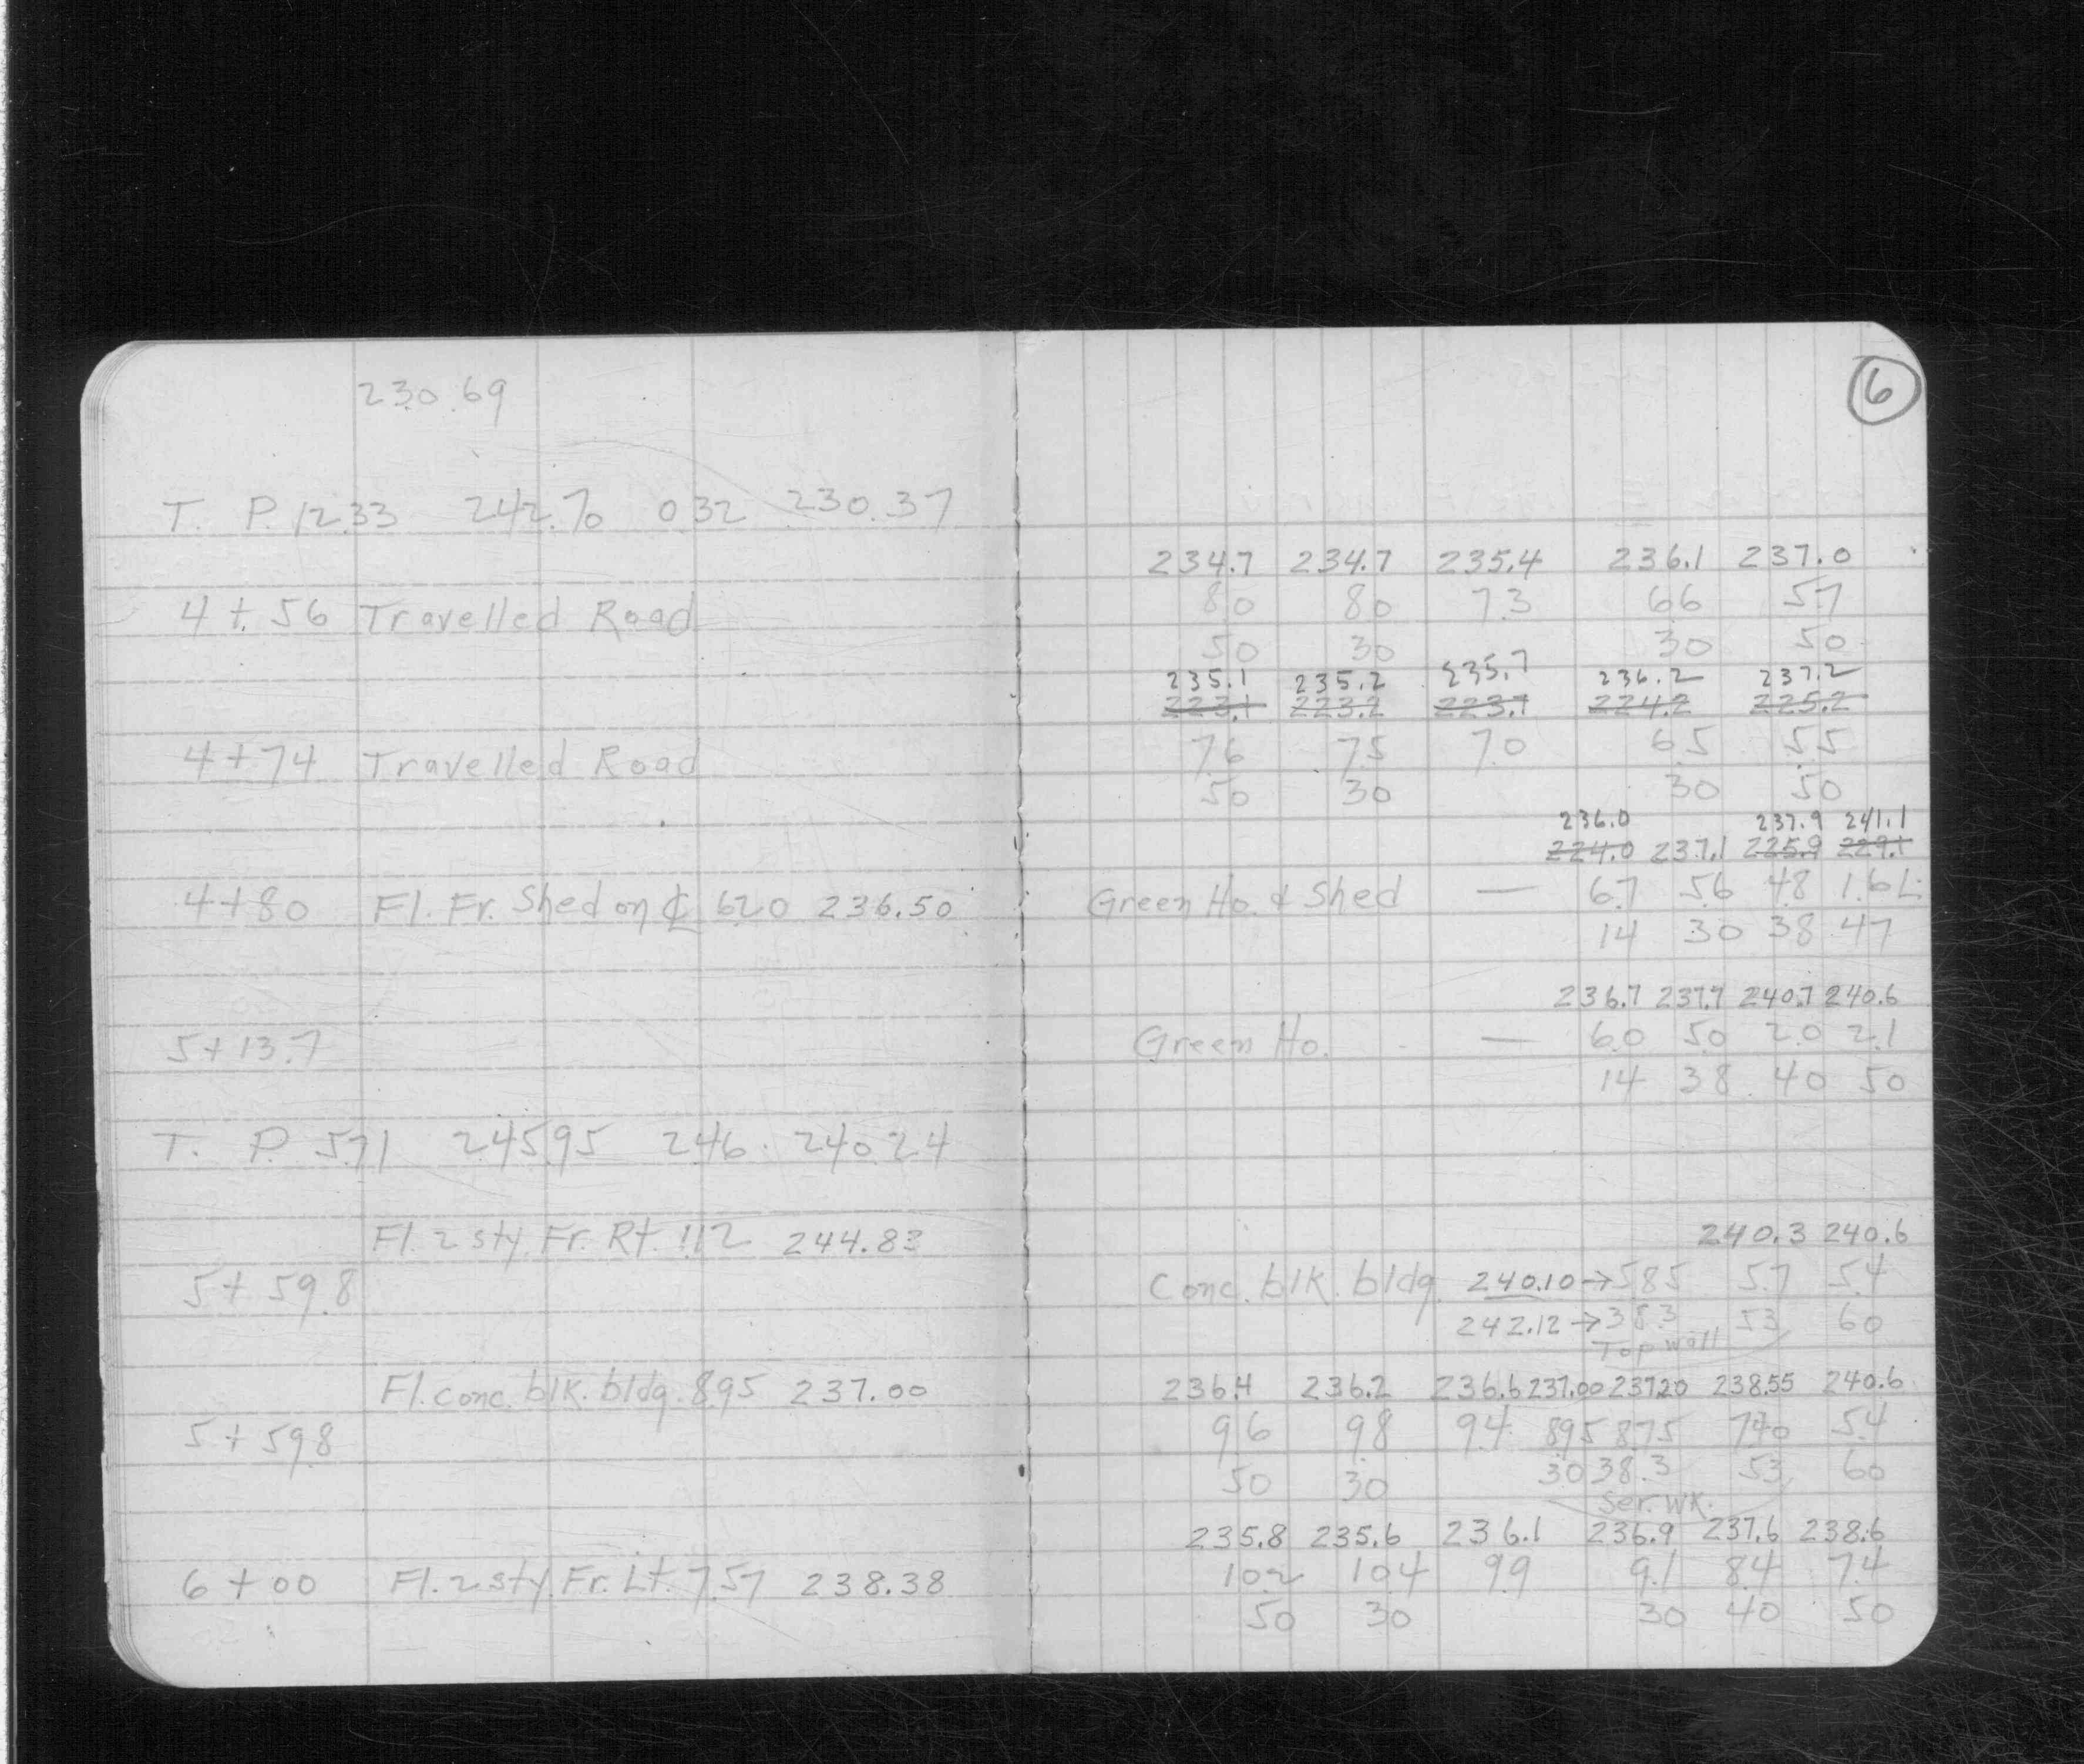 230.69
6
T. P. 12.33 242.70 0.32 230.37
234.7 234.7 235.4 236.1 237.0
4+56 Travelled Road 8.0 8.0 7.3 6.6 5.7
50 30 30 50
235.1 235.2 235.7 236.2 237.2
223.1 223.2 223.7 224.2 225.2
4+74 Travelled Road 7.6 7.5 7.0 6.5 5.5
50 30 30 50
236.0 237.9 241.1
224.0 237.1 225.9 229.1
4+80 Fl. Fr. Shed on ℄ 6.20 236.50 Green Ho. & Shed — 6.7 5.6 4.8 1.6 L.
14 30 38 47
236.7 237.7 240.7 240.6
5+13.7 Green Ho. — 6.0 5.0 2.0 2.1
14 38 40 50
T. P. 5.71 245.95 2.46 240.24
Fl. 2 sty. Fr. Rt. 1.12 244.83 240.3 240.6
5+59.8 Conc. blk. bldg. 240.10→5.85 5.7 5.4
242.12→38.3 53 60
Top wall
Fl. conc. blk. bldg. 8.95 237.00 236.4 236.2 236.6 237.00 237.20 238.55 240.6
5+59.8 9.6 9.8 9.4 8.95 8.75 7.40 5.4
50 30 30 38.3 53 60
Ser. Wk.
235.8 235.6 236.1 236.9 237.6 238.6
6+00 Fl. 2 sty. Fr. Lt. 7.57 238.38 10.2 10.4 9.9 9.1 8.4 7.4
50 30 30 40 50